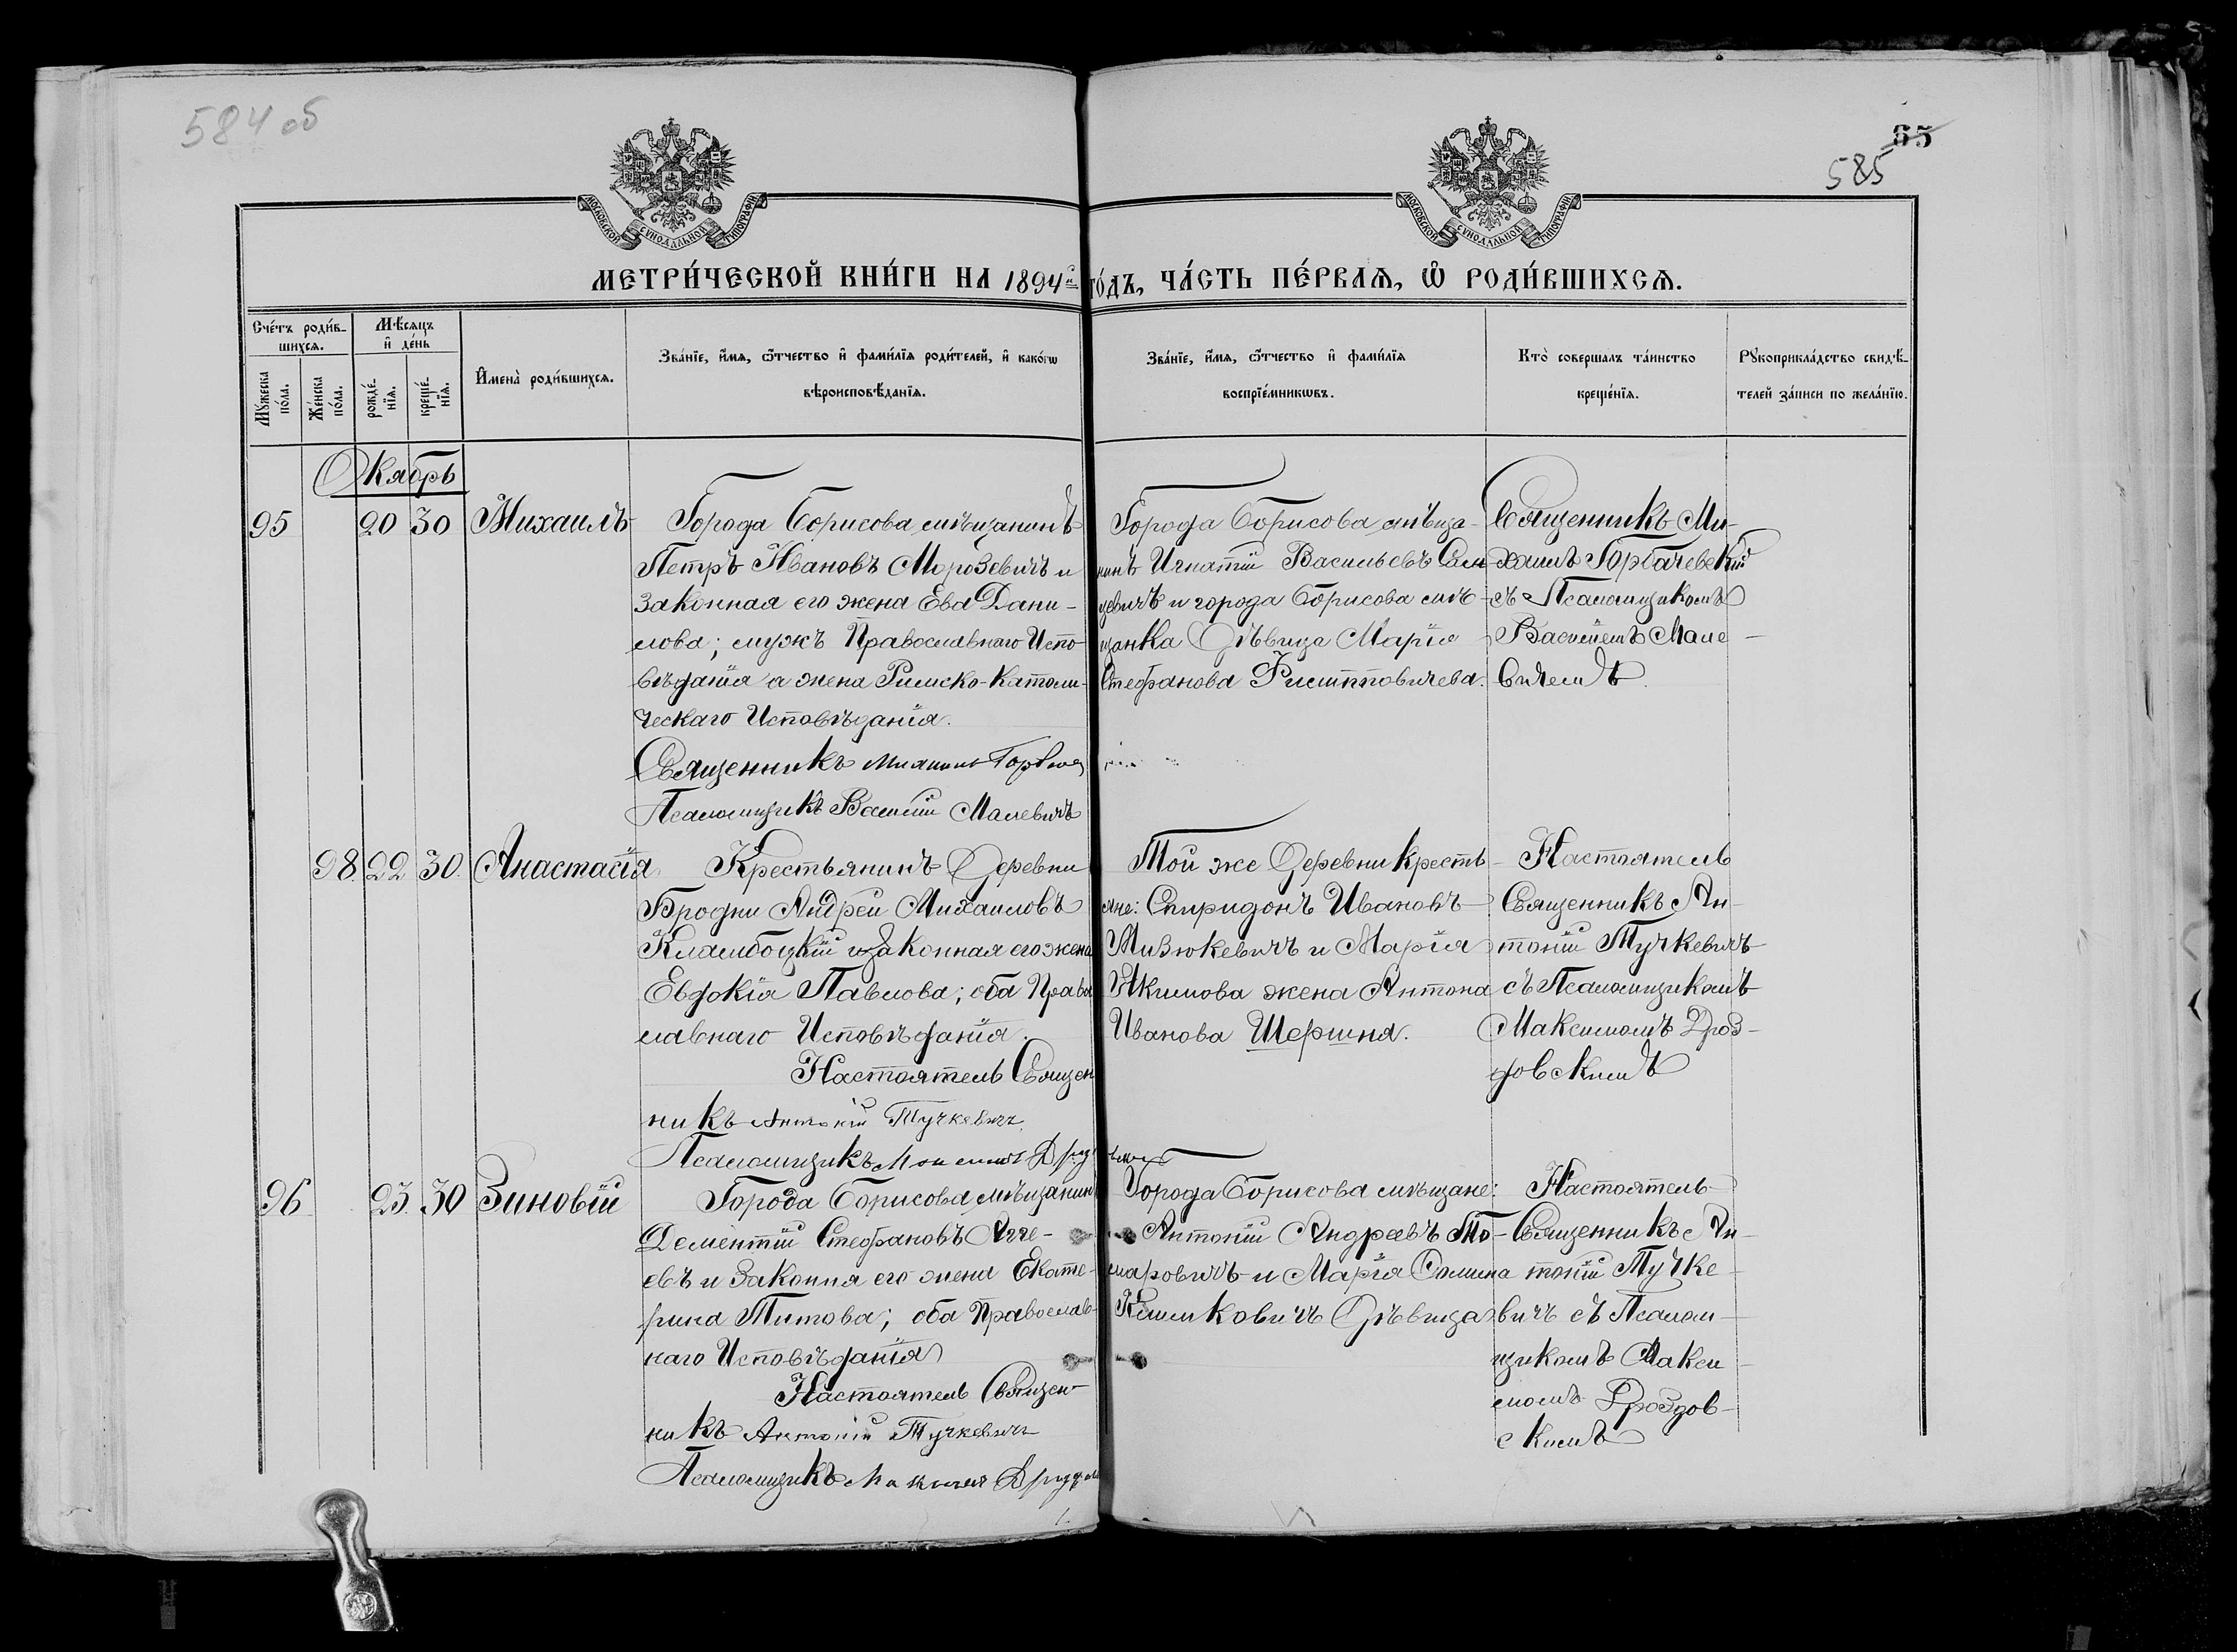 584 об
65
585
МОСКОВСКОЙ СѴНОДАЛЬНОЙ ТИПОГРАФІИ
МОСКОВСКОЙ СѴНОДАЛЬНОЙ ТИПОГРАФІИ
МЕТРИ́ЧЕСКОЙ КНИ́ГИ НА 1894й ГО́ДЪ, ЧА́СТЬ ПЕ́РВАѦ, Ѡ҆ РОДИ́ВШИХСѦ.
Сче́тъ роди́в-
шихсѧ.
Мꙋ́жеска по́ла.
Же́нска по́ла.
Мѣ́сѧцъ
и҆ де́нь
рожде́-нїѧ.
креще́-нїѧ.
И҆мена̀ роди́вшихсѧ.
Зва́нїе, и҆́мѧ, ѻ҆́тчество и҆ фами́лїѧ роди́телей, и҆ како́гѡ
вѣроисповѣ́данїѧ.
Зва́нїе, и҆́мѧ, ѻ҆́тчество и҆ фами́лїѧ
воспрїе́мникѡвъ.
Кто̀ соверша́лъ та́инство
креще́нїѧ.
Рꙋкоприкла́дство свидѣ́-
телей за́писи по жела́нїю.
Октябрь
95
20
30
Михаилъ
Города Борисова мѣщанинъ
Петръ Ивановъ Морозевичъ и
законная его жена Ева Дани-
лова; мужъ Православнаго Испо-
вѣданія а жена Римско-Католи-
ческаго Исповѣданія.
Священникъ Михаилъ
Псаломщикъ Василій Малевичъ
Города Борисова мѣща-
нинъ Игнатій Васильевъ
и города Борисова мѣ-
щанка Дѣвица Марія
Стефанова
Священникъ Ми-
хаилъ Горбачевскій
съ Псаломщикомъ
Василіемъ Мале-
вичемъ
98
22
30
Анастасія
Крестьянинъ Деревни
Бродни Андрей Михаиловъ
и законная его жена
Евдокія Павлова; оба Право
славнаго Исповѣданія.
Настоятель Священ
никъ Антоній Тучкевичъ
Псаломщикъ
Той же Деревни Кресть-
яне: Спиридонъ Ивановъ
Мизюкевичъ и Марія
Якимова жена Антона
Иванова Шершня.
Настоятель
Священникъ Ан-
тоній Тучкевичъ
съ Псаломщикомъ
Максимомъ Дроз-
довскимъ
96
23
30
Зиновій
Города Борисова мѣщанин
Дементій Стефановъ Агге-
евъ и Законня его жена Екате-
рина Титова; оба Православ-
наго Исповѣданія
Настоятель Священ-
никъ Антоній Тучкевичъ
Псаломщикъ
Города Борисова мѣщане:
Антоній Андреевъ
и Марія
Дѣвица
Настоятель
Священникъ Ан-
тоній Тучке-
вичъ съ Псалом-
щикомъ Макси-
момъ Дроздов-
скимъ